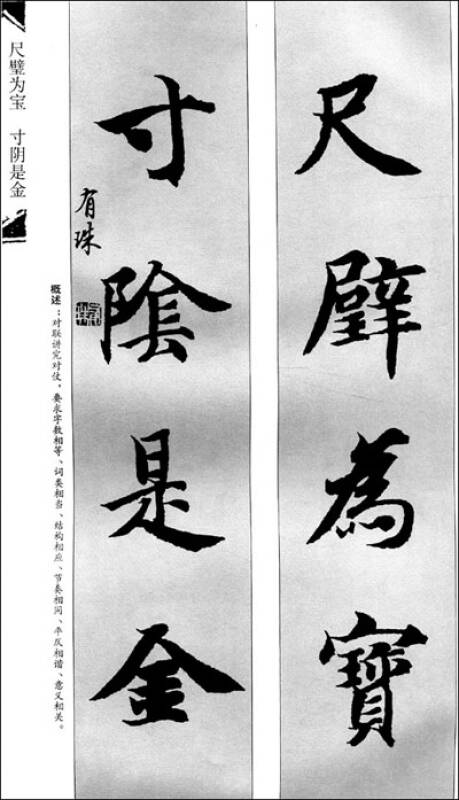 尺璧为宝 寸阴是金
尺璧為寶
寸陰是金
有珠
概述：对联讲究对仗，要求字数相等、词类相当、结构相应、节奏相同、平仄相谐、意义相关。